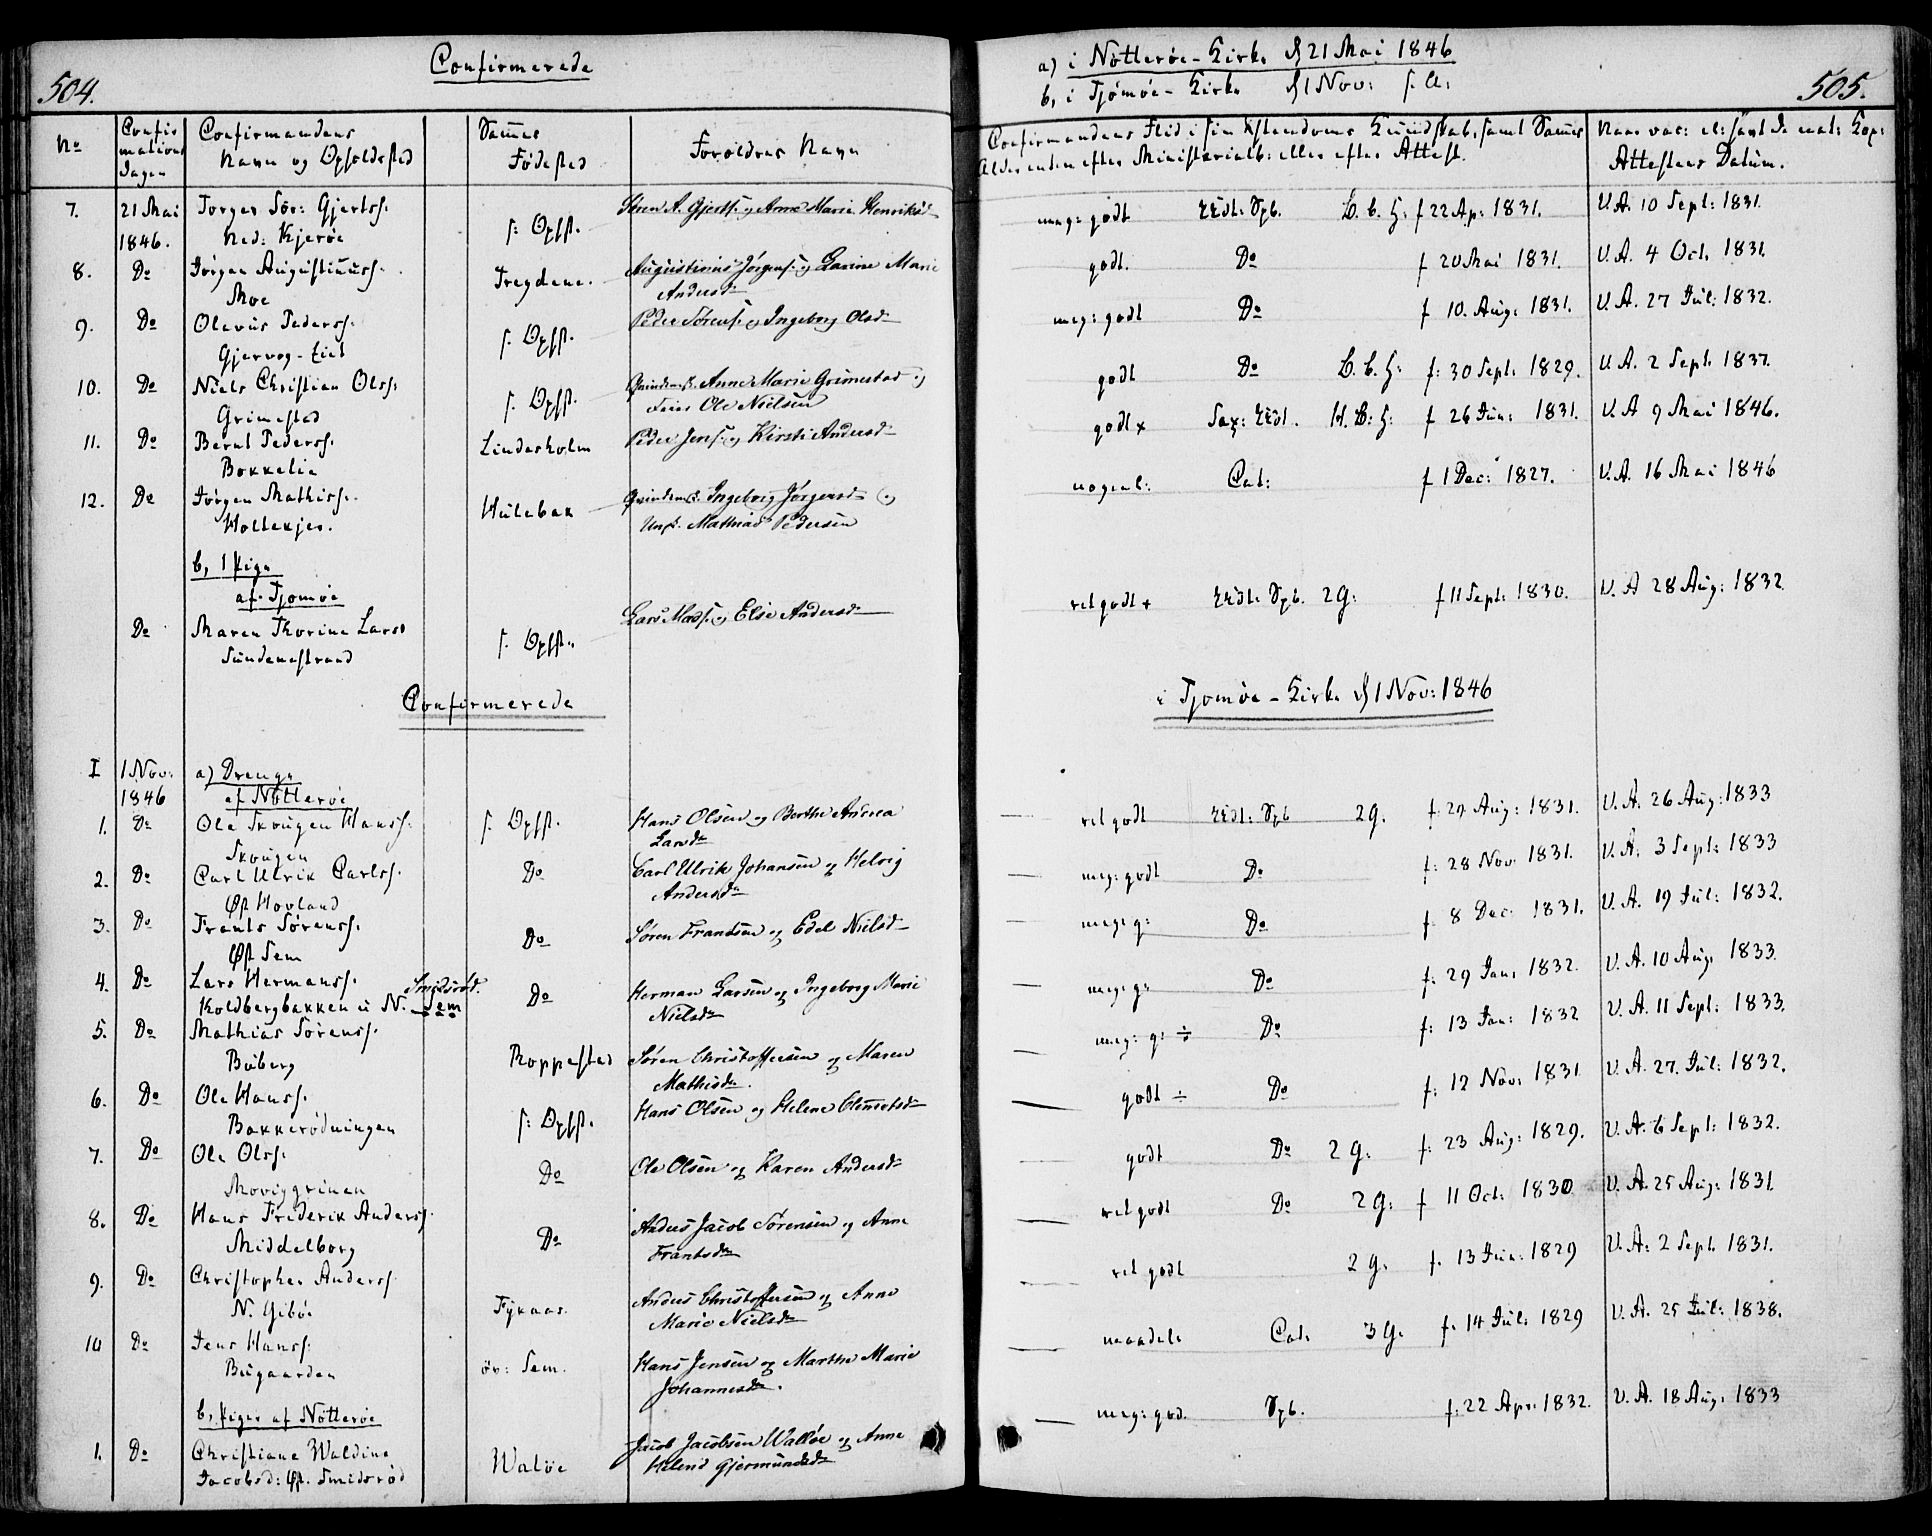 504.
Confirmerede
No
Confirmations Dagen
Confirmandens Navn og Opholdssted
Sammes Fødested
Forældres Navn
7.
21 Mai 1846.
Torger Sør: Gjertss.
Ned: Kjerøe
s: Opsst.
Søren A. Gjertss. og Anne Marie Henriksd
8.
Do
Jørgen Augustinuss.
Moe
Tregdene.
Augustinus Jørgens. og Larine Marie
Andersd
9.
Do
Olevus Pederss.
Gjervog-Eiet
s. Opsst.
Peder Sørens. og Ingeborg Olsd
10.
Do
Niels Christian Olss.
Grimestad
s. Opsst.
Qvindemsk. Anne Marie Grimestad og
Ole Nielsen
11.
Do
Bernt Pederss.
Bekkelie
Lindesholm
Peder Jens. og Kirsti Andersd
12.
Do
Jørgen Mathiss.
Holtekjer.
Hulebak
Qvindemsk. Ingeborg Jørgensd og
Ungk. Mathias Pedersen
b, 1 Pige
af Tjømøe
Do
Maren Thorine Larsd
Sundenestrand
s. Opsst.
Lars Mads. og Else Andersd
Confirmerede
I
1 Nov: 1846
a) Drenge
af Nøtterøe
1.
Do
Ole Skougen Hanss.
Skougen
s. Opsst.
Hans Olsen og Berthe Andrea
Larsd
2.
Do
Carl Ulrik Carlss.
Øst Hovland
Do
Carl Ulrik Johansen og Helvig
Andersd
3.
Do
Frants Sørenss.
Øst Sem
Do
Søren Frantsen og Edel Nielsd
4.
Do
Lars Hermanss. Smidsrød.
Koldbergbakken u N. Sem
Do
Herman Larsen og Ingeborg Marie
Nielsd
5.
Do
Mathias Sørenss.
Buberg
Roppestad
Søren Christoffersen og Maren
Mathisd.
6.
Do
Ole Hanss.
Bakkerødningen
s: Opsst.
Hans Olsen og Helene Clemetsd
7.
Do
Ole Olss.
Skoviggrinen
Do
Ole Olsen og Karen Andersd
8.
Do
Hans Frederik Anderss.
Middelborg
Do
Anders Jacob Sørensen og Anne
Frantsd
9.
Do
Christopher Anderss.
N. Gibøe
Fykaas.
Anders Christoffersen og Anne
Marie Nielsd
10
Do
Jens Hanss.
Bugaarden
öv: Sem.
Hans Jensen og Marthe Marie
Johannesd.
b, Piger af Nøtterøe
1.
Do
Christiane Waldine
Jacobsd: Øst. Smidsrød
Waløe
Jacob Jacobsen Walløe og Anne
Helene Gjermundsd
a) i Nøtterøe-Kirke d 21 Mai 1846
b, i Tjømøe-Kirke d 1 Nov: s. A:
505.
Confirmandens Flid i sin Kristendoms Kundskab, samt Sammes
Alder enten efter Ministerialb: eller efter Attest.
Naar vac: el: havt de nat: Kop:
Attestens Datum.
meg: godt Do L. b. H: f 22 Ap: 1831. V.A. 10 Sept: 1831.
godt. Do f 20 Mai 1831. V.A. 4 Oct. 1831.
meg: godt Do f 10. Aug. 1831. V.A. 27 Jul: 1832.
godt Do L. b. H: f: 30 Sept. 1829. V.A. 2 Sept. 1837.
godt x H. B: H: f 26 Jun: 1831. V.A 9 Mai 1846.
nogenl: Cat: f 1 Dec: 1827. V.A. 16 Mai 1846
ret godt + Spb. 2 G: f 11 Sept: 1830. V.A 28 Aug: 1832
i Tjømøe-Kirke d 1 Nov: 1846
ret godt Spb 2 G. f. 29 Aug: 1831. V.A. 26 Aug: 1833
meg: godt Do f: 28 Nov. 1831. V.A. 3 Sept: 1833
meg. g: Do f 8 Dec: 1831. V.A. 19 Jul: 1832.
meg. g: Do f: 29 Jan. 1832. V.A. 10 Aug. 1833.
meg: g: ÷ Do f: 13 Jan: 1832 V.A. 11 Sept: 1833.
godt ÷ Do f: 12 Nov: 1831 V.A. 27. Jul: 1832.
godt Do 2 G: f: 23 Aug: 1829. V.A. 6 Sept: 1832.
ret godt Do 2 G; f 11 Oct: 1830 V.A. 25 Aug: 1831.
ret godt 2 G. f. 13 Jun: 1829 V.A: 2 Sept. 1831.
maadel: Cat. 3 G. f. 14 Jul: 1829 V.A. 25 Jul: 1838.
meg: god. Spb. f: 22 Apr: 1832. V.A. 18 Aug. 1833